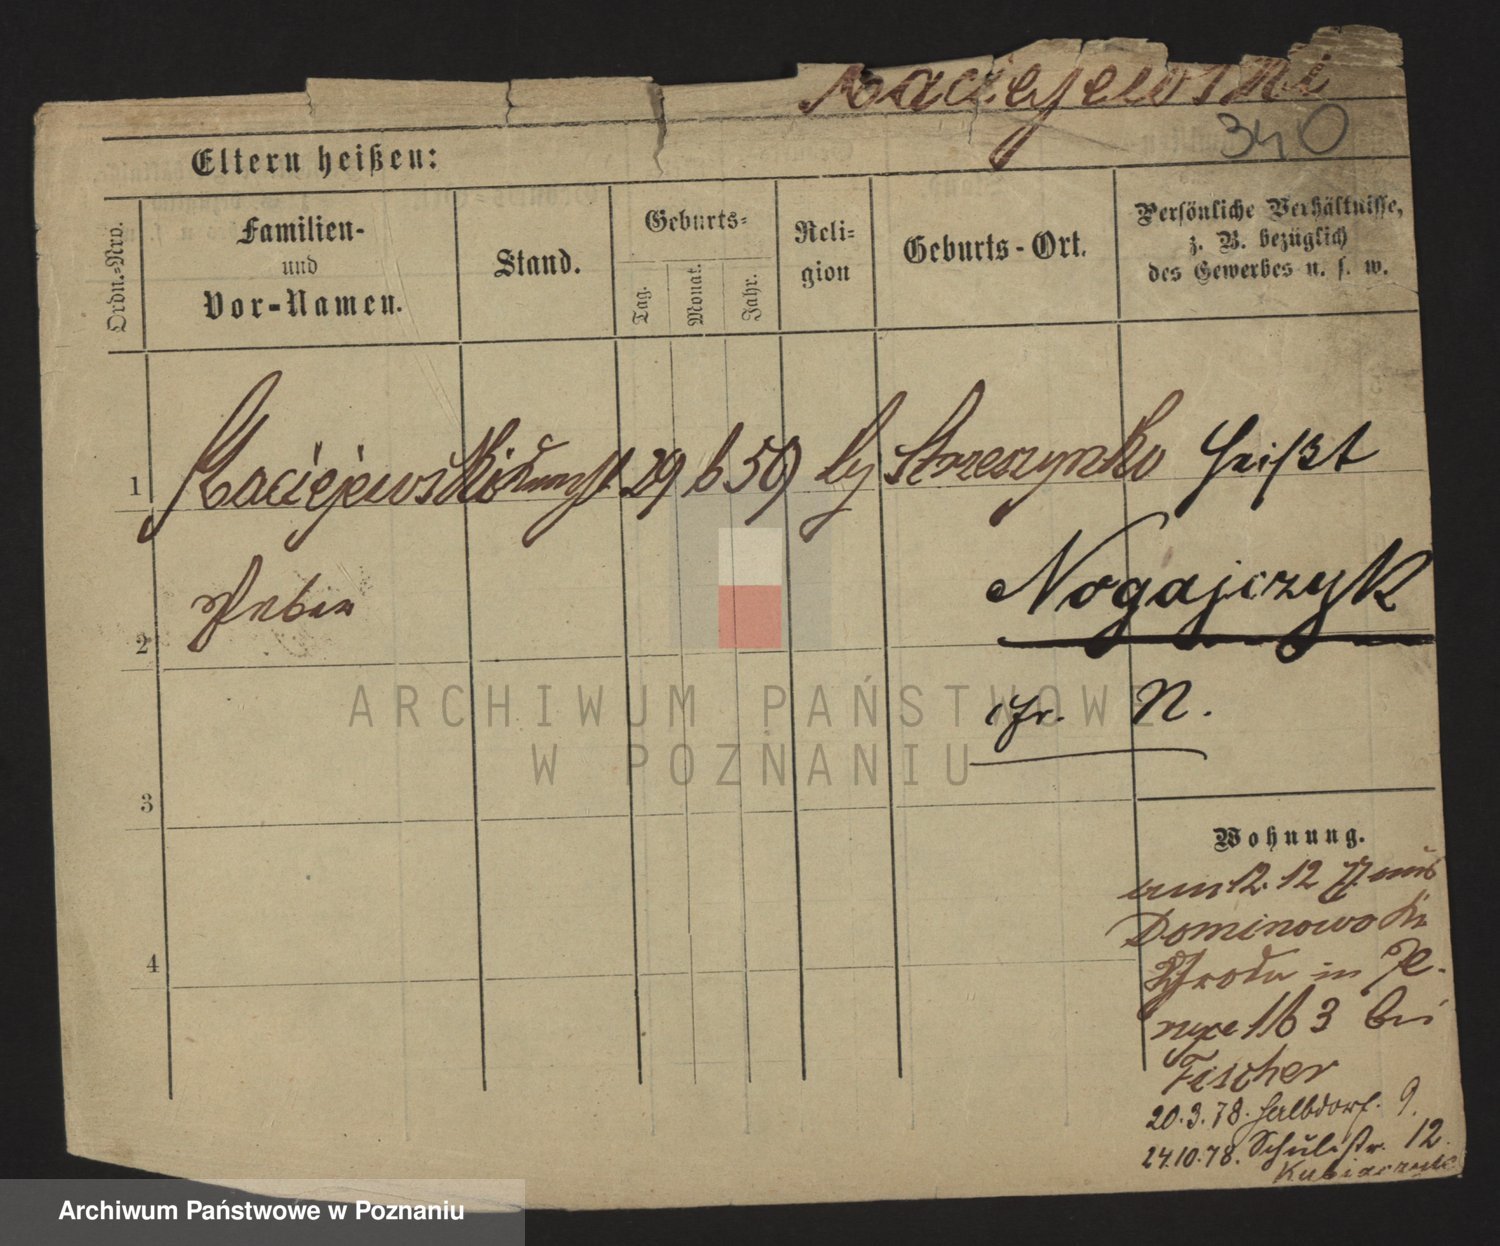 Maciejewski
340
Eltern heißen:
Ordn.-Nro.
Familien-
und
Vor-Namen.
Stand.
Geburts-
Tag.
Monat.
Jahr.
Reli-
gion
Geburts-Ort.
Persönliche Verhältnisse,
z. B. bezüglich
des Gewerbes u. s. w.
1 Maciejewski 29 6 59 Strzeszynko heißt
Nogajczyk
2
fr. N.
3
Wohnung.
am 12. 12 77 aus
Dominowo Kr
Schroda in Je-
rzyce 163 bei
Fischer
4
20.3.78. Halbdorf. 9.
24.10.78. Schulstr. 12.
Kubiaczyk
ARCHIWUM PAŃSTWOWE
W POZNANIU
Archiwum Państwowe w Poznaniu